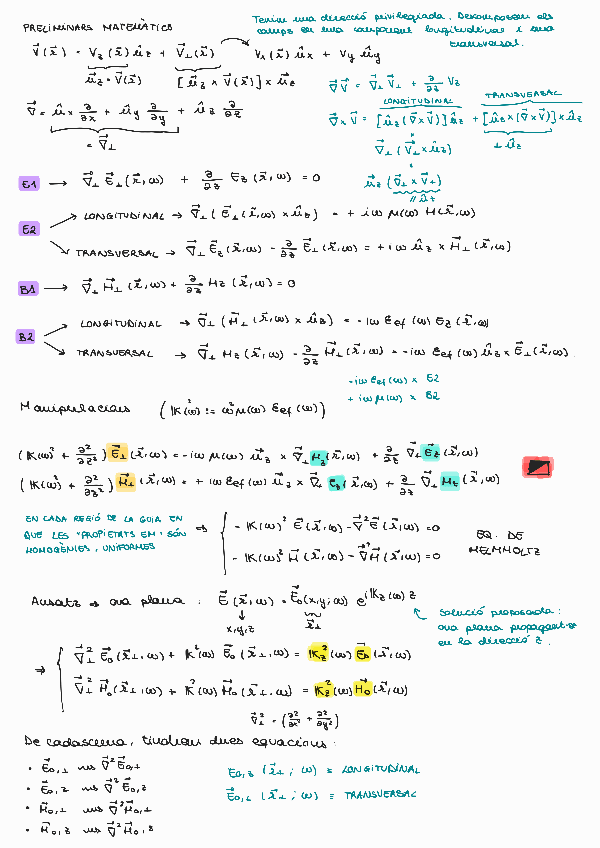 PRELIMINARS MATEMÀTICS
Tenim una direcció privilegiada. Descomposem els camps en una component longitudinal i una transversal.
V⃗(r⃗) = V_z(r⃗) û_z + V⃗_⊥(r⃗) → V_x(r⃗) û_x + V_y û_y
û_z · V⃗(r⃗)   [û_z × V⃗(r⃗)] × û_z
∇⃗V⃗ = ∇⃗_⊥ V⃗_⊥ + ∂/∂z V_z
LONGITUDINAL   TRANSVERSAL
∇⃗ = û_x ∂/∂x + û_y ∂/∂y + û_z ∂/∂z
= ∇⃗_⊥
∇⃗×V⃗ = [û_z(∇⃗×V⃗)] û_z + [û_z×(∇⃗×V⃗)]×û_z
∇⃗_⊥(V⃗_⊥×û_z)   ⊥ û_z
û_z(∇⃗_⊥×V⃗_⊥)
// û_z
E1 → ∇⃗_⊥ E⃗_⊥(r⃗,ω) + ∂/∂z E_z(r⃗,ω) = 0
E2
LONGITUDINAL → ∇⃗_⊥(E⃗_⊥(r⃗,ω)×û_z) = + iω μ(ω) H(r⃗,ω)
TRANSVERSAL → ∇⃗_⊥ E_z(r⃗,ω) - ∂/∂z E⃗_⊥(r⃗,ω) = + iω û_z × H⃗_⊥(r⃗,ω)
B1 → ∇⃗_⊥ H⃗_⊥(r⃗,ω) + ∂/∂z H_z(r⃗,ω) = 0
B2
LONGITUDINAL → ∇⃗_⊥(H⃗_⊥(r⃗,ω)×û_z) = - iω ε_ef(ω) E_z(r⃗,ω)
TRANSVERSAL → ∇⃗_⊥ H_z(r⃗,ω) - ∂/∂z H⃗_⊥(r⃗,ω) = - iω ε_ef(ω) û_z × E⃗_⊥(r⃗,ω).
- iω ε_ef(ω) × E2
+ iω μ(ω) × B2
Manipulacions (K²(ω) := ω² μ(ω) ε_ef(ω))
(K(ω)² + ∂²/∂z²) E⃗_⊥(r⃗,ω) = - iω μ(ω) û_z × ∇⃗_⊥ H_z(r⃗,ω) + ∂/∂z ∇⃗_⊥ E_z(r⃗,ω)
(K(ω)² + ∂²/∂z²) H⃗_⊥(r⃗,ω) = + iω ε_ef(ω) û_z × ∇⃗_⊥ E_z(r⃗,ω) + ∂/∂z ∇⃗_⊥ H_z(r⃗,ω)
EN CADA REGIÓ DE LA GUIA EN
QUE LES "PROPIETATS EM" SÓN
HOMOGÈNIES, UNIFORMES
⇒ - K(ω)² E⃗(r⃗,ω) - ∇⃗² E⃗(r⃗,ω) = 0
- K(ω)² H⃗(r⃗,ω) - ∇⃗² H⃗(r⃗,ω) = 0
EQ. DE
HELMHOLTZ
Ansatz ⇒ ona plana : E⃗(r⃗,ω) = E⃗_0(x,y;ω) e^{iK_z(ω) z}
x,y,z   r⃗_⊥
Solució proposada:
ona plana propagant-se
en la direcció z.
⇒ ∇⃗_⊥² E⃗_0(r⃗_⊥,ω) + K²(ω) E⃗_0(r⃗_⊥,ω) = K_z²(ω) E⃗_0(r⃗,ω)
∇⃗_⊥² H⃗_0(r⃗_⊥,ω) + K²(ω) H⃗_0(r⃗_⊥,ω) = K_z²(ω) H⃗_0(r⃗,ω)
∇⃗_⊥² = (∂²/∂x² + ∂²/∂y²)
De cadascuna, tindrem dues equacions :
· E⃗_{0,⊥} ⇝ ∇⃗² E⃗_{0,⊥}
· E⃗_{0,z} ⇝ ∇⃗² E⃗_{0,z}
· H⃗_{0,⊥} ⇝ ∇⃗² H⃗_{0,⊥}
· H⃗_{0,z} ⇝ ∇⃗² H⃗_{0,z}
E_{0,z}(r⃗_⊥; ω) ≡ LONGITUDINAL
E⃗_{0,⊥}(r⃗_⊥; ω) ≡ TRANSVERSAL